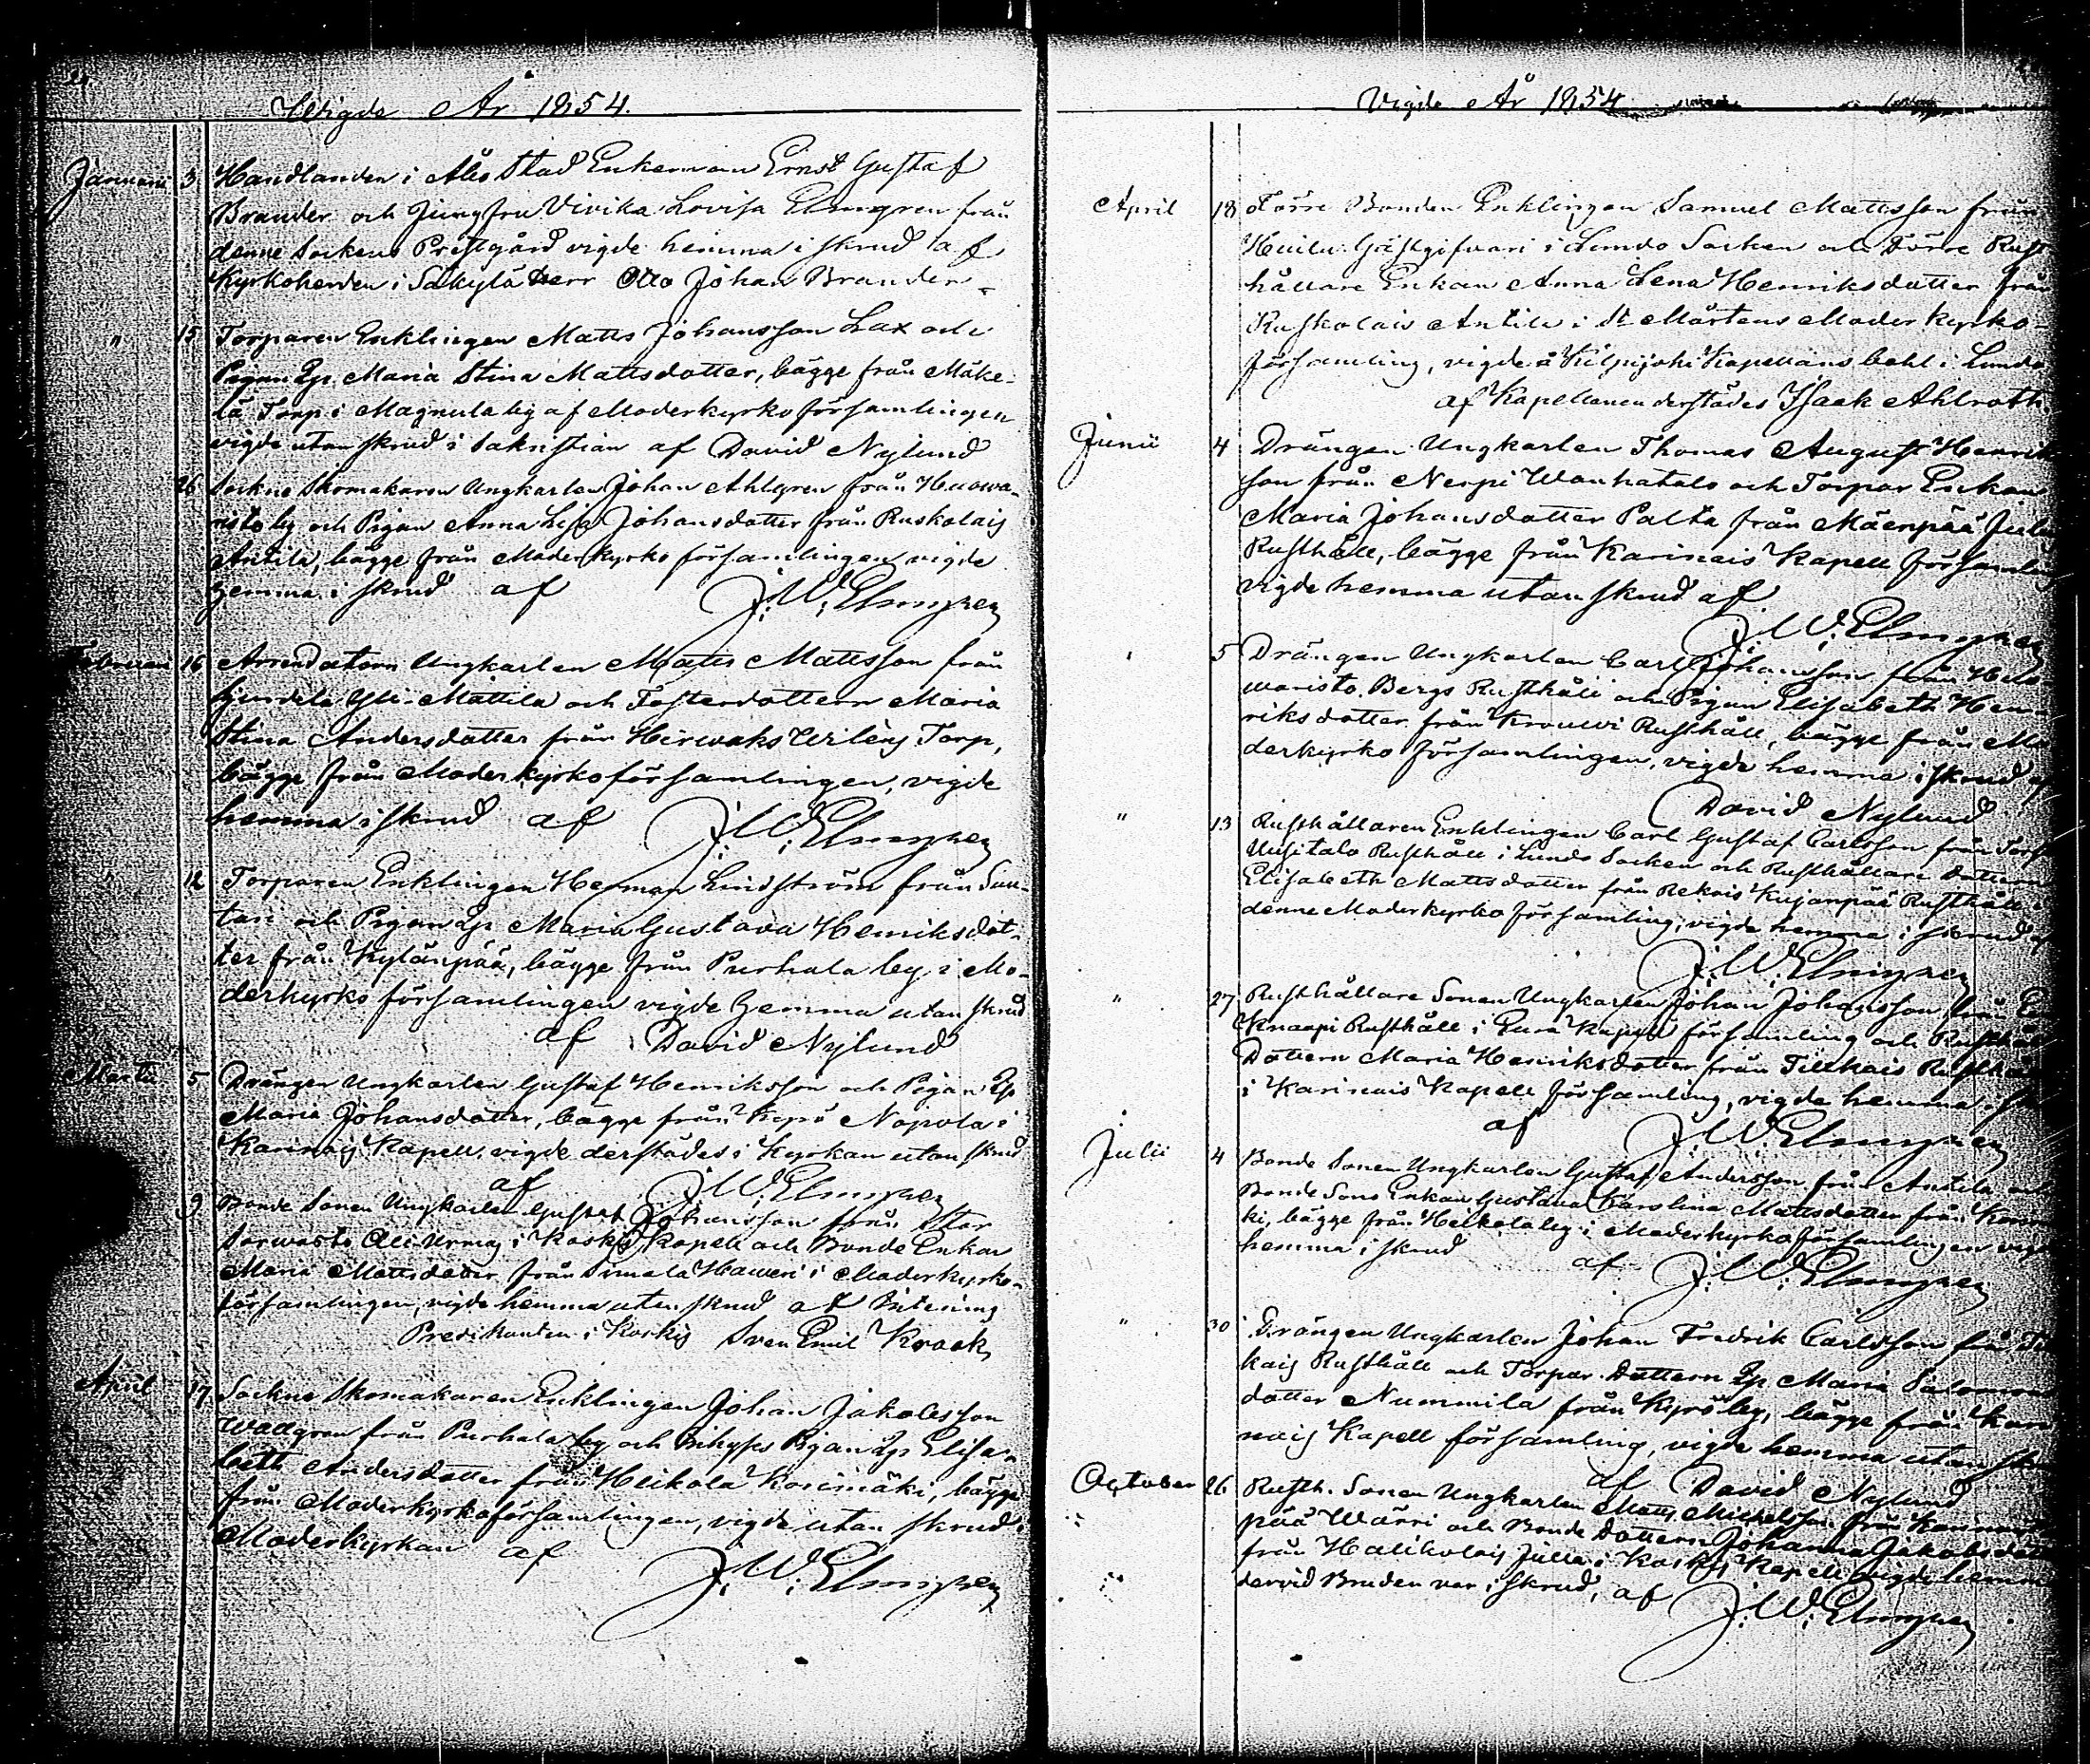 Wigde År 1854.
Januari 3 Handlanden i Åbo Stad Enkeman Ernst Gustaf
Brander och Jungfru Vivika Lovisa Elmgren från
denne Sockens Prestgård vigde hemma i skrud af
Kyrkoherden i Säkylä Herr Otto Johan Brander.
" 15 Torparen Enklingen Matts Johansson Lax och
Pigan Qp. Maria Stina Mattsdotter, bägge från Mäke-
lä Torp i Magnula by af Moderkyrkoförsamlingen
vigde utan skrud i Sakristian af David Nylund
26 Sockne Skomakaren Ungkarlen Johan Ahlgren från Huowa-
risto by och Pigan Anna Lisa Johansdotter från Ruskolais
Antila, bägge från Moderkyrko församlingen vigde
hemma i skrud af J. W. Elmgren
Februari 16 Arrendatorn Ungkarlen Matts Mattsson från
Yli-Mattila och Fosterdottern Maria
Stina Andersdotter från Hirwoks Torp,
bägge från Moderkyrkoförsamlingen, vigde
hemma i skrud af J. W. Elmgren
" 12 Torparen Enklingen Herman Lindström från San-
tari och Pigan Qp Maria Gustava Henriksdot-
ter från Kylänpää, bägge från Purhala by i Mo-
derkyrko församlingen vigde hemma utan skrud
af David Nylund
Martii 5 Drängen Ungkarlen Gustaf Henriksson och Pigan Qp
Maria Johansdotter, bägge från Kyrö Nopola i
Karinais Kapell, vigde derstädes i Kyrkan utan skrud
af J. W. Elmgren
9 Bonde Sonen Ungkarlen Gustaf Johansson från Stor
Sorwasto Ali Urmas i Koskis Kapell och Bonde Enkan
Maria Mattsdotter från Simala Haweri i Moderkyrko-
församlingen, vigde hemma utan skrud af
Predikanten i Koskis Sven Emil Kraack
April 17 Sockne Skomakaren Enklingen Johan Jakobsson
Wadgren från Purhala by och Inhyses Pigan Qp Elisa-
beth Andersdotter från Heikola Korsimäki, bägge
från Moderkyrkoförsamlingen, vigde utan skrud i
Moderkyrkan af J. W. Elmgren
Vigde År 1854
April 18 Förre Bonden Enklingen Samuel Mattsson från
Gästgifvari i Lundo Socken och Förre Rust
hållare Enkan Anna Lena Henriksdotter från
Ruskolais Antila i St Mårtens Moderkyrko-
församling, vigde å Kilpijoki Kapellans bohl i Lundo
af Kapellanen derstädes Isaak Ahlroth.
Junii 4 Drängen Ungkarlen Thomas August Henrik
son från Nerpi Wanhatalo och Torpar Enkan
Maria Johansdotter Palta från Mäenpää
Rusthåll, bägge från Karinais Kapell församling
vigde hemma utan skrud af
J. W. Elmgren
5 Drängen Ungkarlen Carl Johansson från Huo-
waristo Bergs Rusthåll och Pigan Elisabeth Hen-
riksdotter från Krouwi Rusthåll, bägge från Mo
derkyrko församlingen, vigde hemma i skrud af
David Nylund
" 13 Rusthållaren Enklingen Carl Gustaf Carlsson från
Uusitalo Rusthåll i Lundo Socken och Rusthållare Dottern
Elisabeth Mattsdotter från Rekois Kujanpää Rusthåll i
denne Moderkyrko församling, vigde hemma i skrud af
J. W. Elmgren
" 27 Rusthållare Sonen Ungkarlen Johan Johansson från
Knaapi Rusthåll i Eura Kapell församling och Rusthål
Dottern Maria Henriksdotter från Tillkais Rusthåll
i Karinais Kapell församling, vigde hemma i
af J. W. Elmgren
Julii 4 Bonde Sonen Ungkarlen Gustaf Andersson från Antila och
Bonde Sons Enkan Gustava Karolina Mattsdotter från
ki, bägge från Heikola by i Moderkyrkoförsamlingen vigde
hemma i skrud af J. W. Elmgren
" 30 Drängen Ungkarlen Johan Fredrik Carlsson från Til
kais Rusthåll och Torpar Dottern Qp Maria Salomons
dotter Nummila från Kyrö by, bägge från Kari
nais Kapell församling, vigde hemma utan skrud
af David Nylund
October 26 Rusth. Sonen Ungkarlen Matts Michelsson från
pää Wärri och Bonde Dottern Johanna Jakobsdotter
från Halikolais Julla i Koskis Kapell vigde hemma
dervid Bruden var i skrud, af J. W. Elmgren